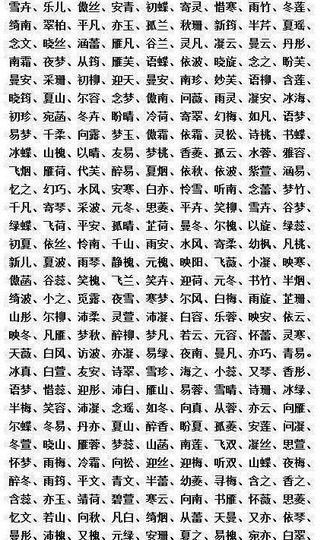 雪卉、乐儿、幼丝、安青、初蝶、寄灵、惜寒、雨竹、冬莲、
绮南、翠柏、平凡、亦玉、孤兰、秋珊、新筠、半芹、夏瑶、
念文、晓丝、涵蕾、雁凡、谷兰、灵凡、凝云、曼云、丹彤、
南霜、夜梦、从筠、雁芙、语蝶、依波、晓旋、念之、盼芙、
曼安、采珊、初柳、迎天、曼安、南珍、妙芙、语柳、含莲、
晓筠、夏山、尔容、念梦、傲南、问薇、雨灵、凝安、冰海、
初珍、宛菡、冬卉、盼晴、冷荷、寄翠、幻梅、如凡、语梦、
易梦、千柔、向露、梦玉、傲霜、依霜、灵松、诗桃、书蝶、
冰蝶、山槐、以晴、友易、梦桃、香菱、孤云、水蓉、雅容、
飞烟、雁荷、代芙、醉易、夏烟、依秋、依波、紫萱、涵易、
忆之、幻巧、水风、安寒、白亦、怜雪、听南、念蕾、梦竹、
千凡、寄琴、采波、元冬、思菱、平卉、笑柳、雪卉、谷梦、
绿蝶、飞荷、平安、孤晴、芷荷、曼冬、尔槐、以旋、绿蕊、
初夏、依丝、怜南、千山、雨安、水风、寄柔、幼枫、凡桃、
新儿、夏波、雨琴、静槐、元槐、映阳、飞薇、小凝、映寒、
傲菡、谷蕊、笑槐、飞兰、笑卉、迎荷、元冬、书竹、半烟、
绮波、小之、觅露、夜雪、寒梦、尔风、白梅、雨旋、芷珊、
山彤、尔柳、沛柔、灵萱、沛凝、白容、乐蓉、映安、依云、
映冬、凡雁、梦秋、醉柳、梦凡、若云、元容、怀蕾、灵寒、
天薇、白风、访波、亦凝、易绿、夜南、曼凡、亦巧、青易。
冰真、白萱、友安、诗翠、雪珍、海之、小蕊、又琴、香彤、
语梦、惜蕊、迎彤、沛白、雁山、易蓉、雪晴、诗珊、冰绿、
半梅、笑容、沛凝、念瑶、如冬、向真、从蓉、亦云、向雁、
尔蝶、冬易、丹亦、夏山、醉香、盼夏、孤菱、安莲、问凝、
冬萱、晓山、雁蓉、梦蕊、山菡、南莲、飞双、凝丝、思萱、
怀梦、雨梅、冷霜、向松、迎丝、迎梅、听双、山蝶、夜梅、
醉冬、雨筠、平文、青文、半蕾、幼菱、寻梅、含之、香之、
含蕊、亦玉、靖荷、碧萱、寒云、向南、书雁、怀薇、思菱、
忆文、若山、向秋、凡白、绮烟、从蕾、天曼、又亦、依琴、
曼彤、沛槐、又槐、元绿、安珊、夏之、易槐、宛亦、白翠、